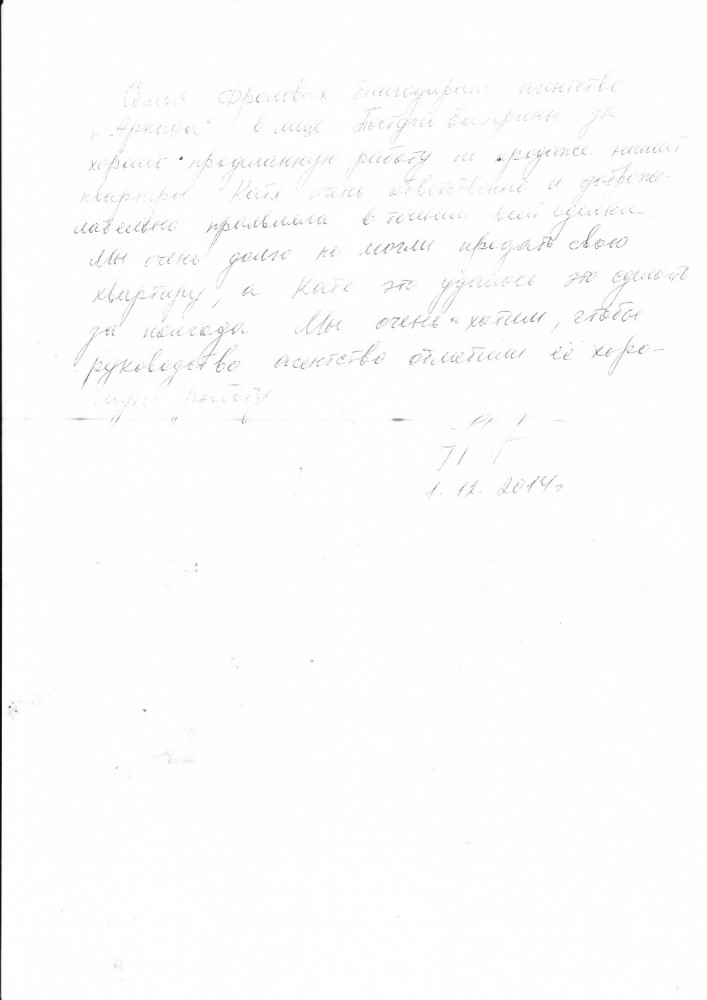 Семья Фроловых благодарит агентство
"Аркада" в лице Екатерины за
хорошо проделанную работу по продаже нашей
квартиры Катя очень ответственно и доброже-
лательно в течении всей сделки
Мы очень долго не могли продать свою
квартиру, а Кате это удалось это сделать
за полгода Мы очень хотим, чтобы
руководство агентство отметили её хоро-
шую работу
1. 12. 2014г.